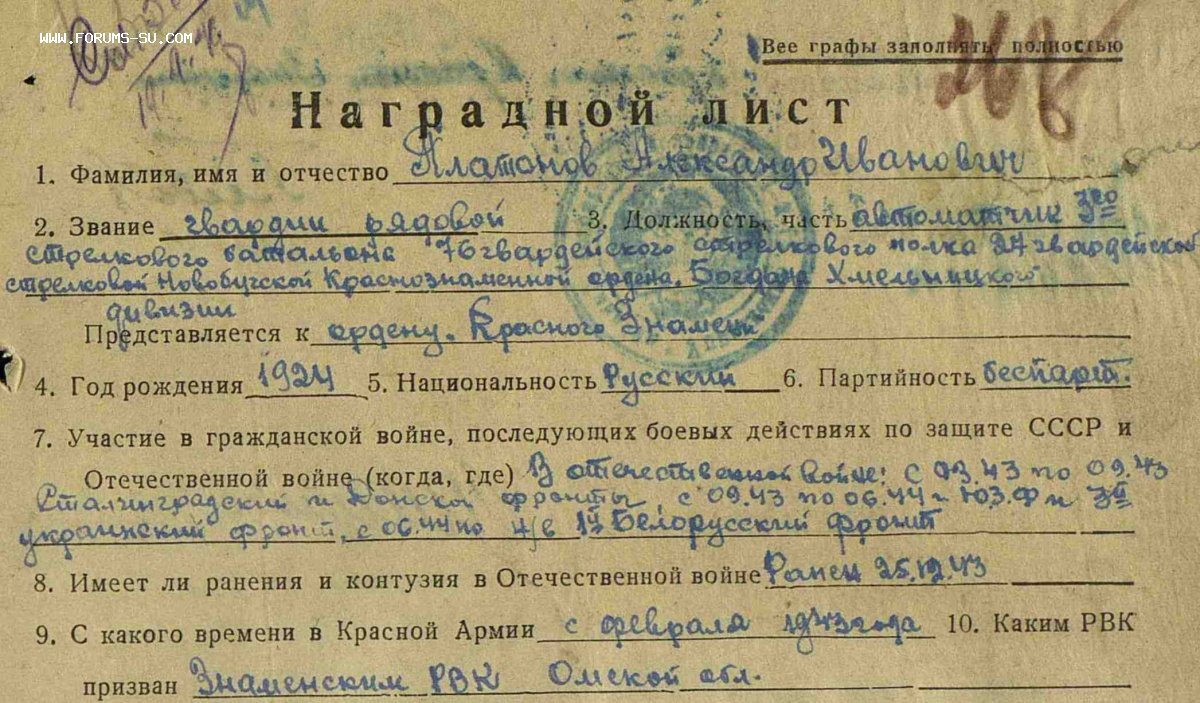 www.forums-su.com
Все графы заполнять полностью
Наградной лист
1. Фамилия, имя и отчество Платонов Александр Иванович
2. Звание гвардии рядовой 3. Должность, часть автоматчик 3го
стрелкового батальона 76 гвардейского стрелкового полка 27 гвардейской
стрелковой Новобугской Краснознаменной ордена Богдана Хмельницкого
дивизии
Представляется к ордену Красного Знамени
4. Год рождения 1924 5. Национальность Русский 6. Партийность беспарт.
7. Участие в гражданской войне, последующих боевых действиях по защите СССР и
Отечественной войне (когда, где) В отечественной войне: с 03.43 по 09.43
Сталинградский и Донской фронты с 09.43 по 06.44 г. ЮЗФ и 3й
украинский фронт, с 06.44 по н/в 1й Белорусский фронт
8. Имеет ли ранения и контузия в Отечественной войне Ранен 25.12.43
9. С какого времени в Красной Армии с февраля 1943 года 10. Каким РВК
призван Знаменским РВК Омской обл.